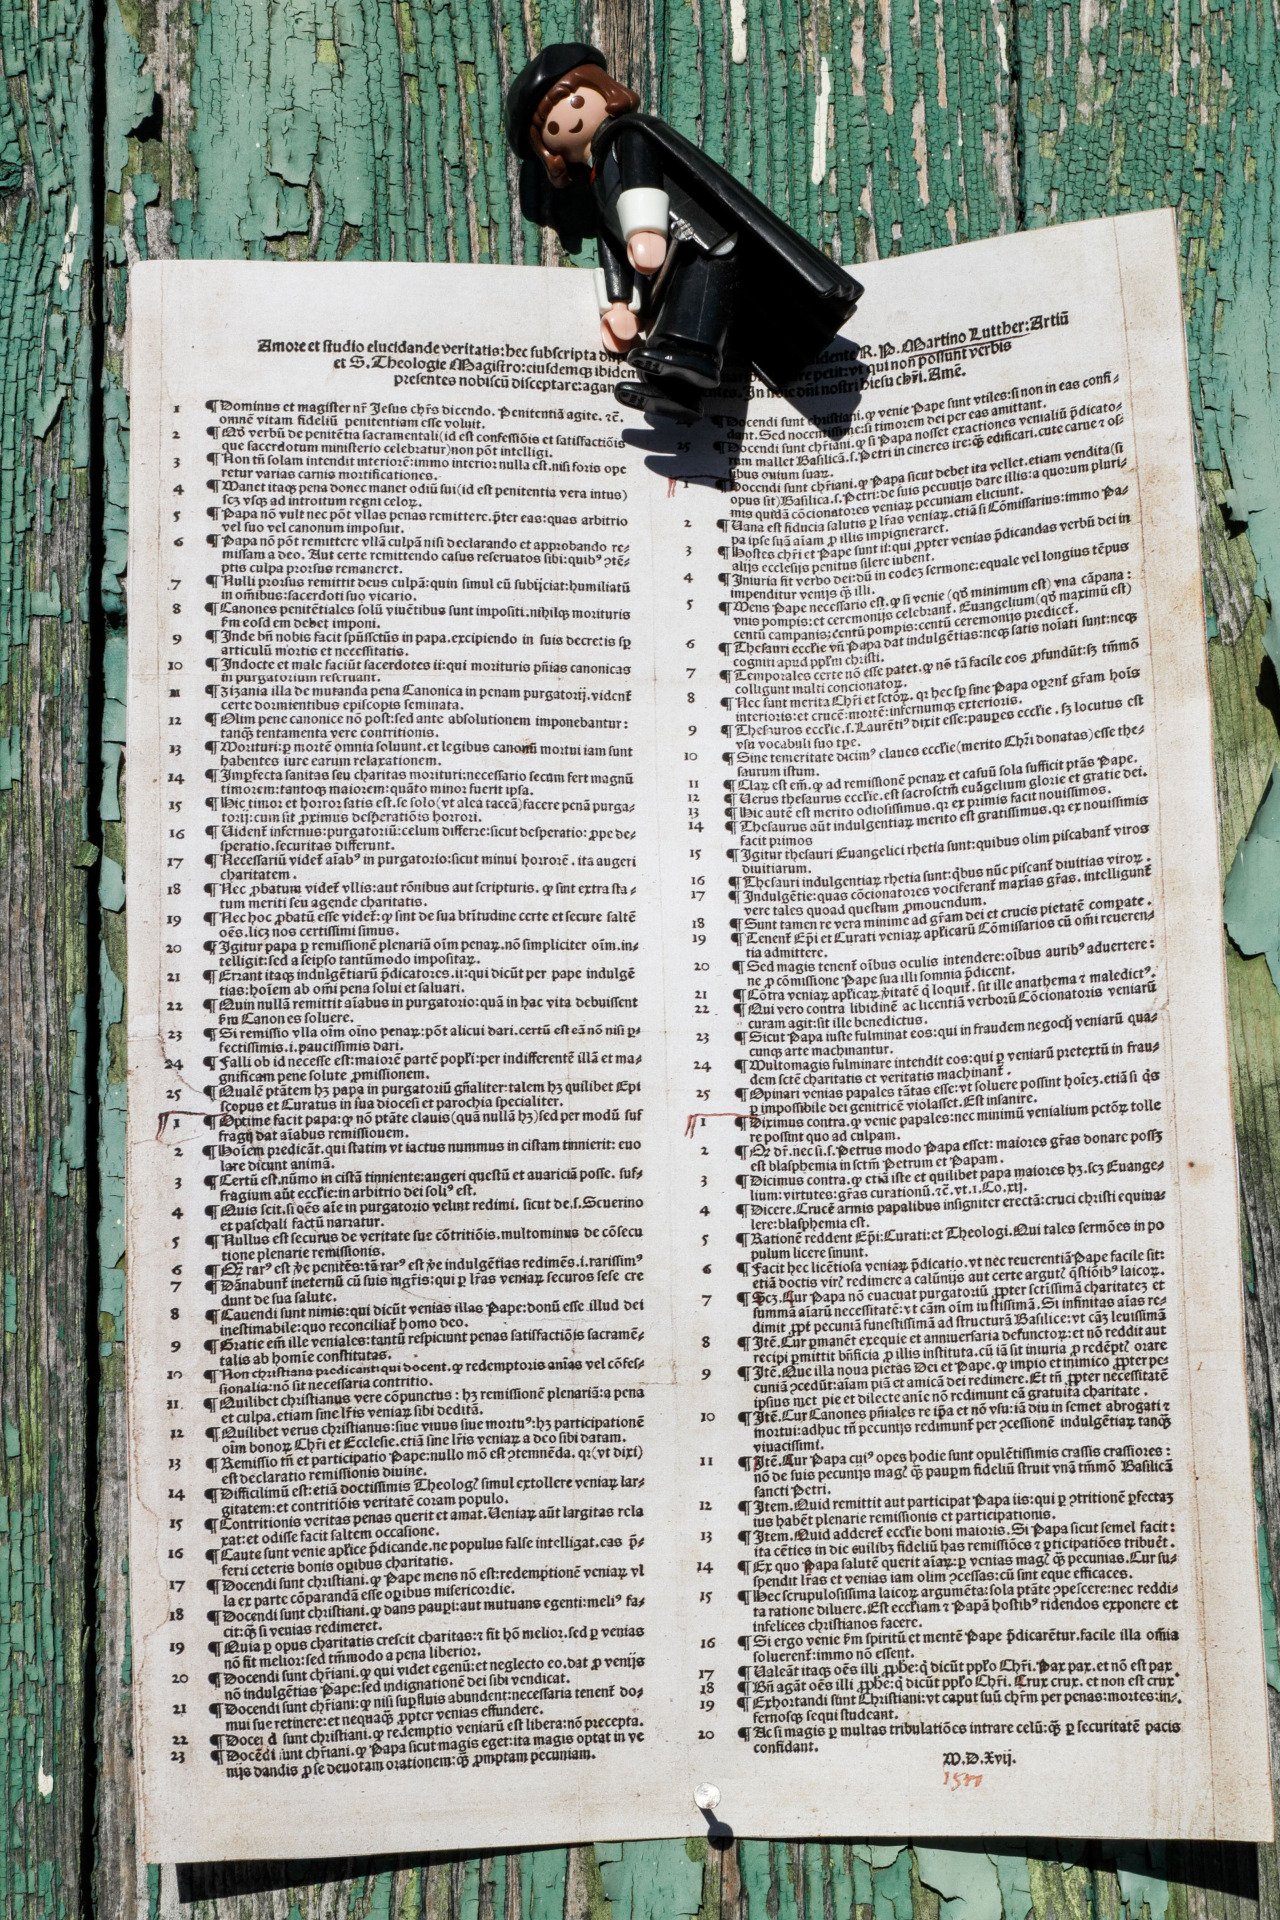 Amore et studio elucidande veritatis: hec subscripta
et S. Theologie Magistro: eiusdemqꝫ ibidem
presentes nobiscũ disceptare: agan
R. P. Martino Lutther: Artiũ
petit: vt qui non possunt verbis
In noĩe dñi nostri hiesu chr̃i. Amẽ.
1 ¶ Dominus et magister nr̃ Jesus chr̃s dicendo. Penitentiã agite. ꝛc̃.
omnẽ vitam fideliũ penitentiam esse voluit.
2 ¶ Qđ verbũ de penitẽtia sacramentali (id est confessiõis et satisfactiõis
que sacerdotum ministerio celebratur) non põt intelligi.
3 ¶ Non tñ solam intendit interiorẽ: immo interior nulla est. nisi foris ope
retur varias carnis mortificationes.
4 ¶ Manet itaqꝫ pena donec manet odiũ sui (id est penitentia vera intus)
scꝫ vsqꝫ ad introitum regni celoꝝ.
5 ¶ Papa nõ vult nec põt vllas penas remittere. p̃ter eas: quas arbitrio
vel suo vel canonum imposuit.
6 ¶ Papa nõ põt remittere vllã culpã nisi declarando et approbando re⸗
missam a deo. Aut certe remittendo casus reseruatos sibi: quibꝰ ꝯtẽ⸗
ptis culpa prorsus remaneret.
7 ¶ Nulli prorsus remittit deus culpã: quin simul eũ subijciat: humiliatũ
in om̃ibus: sacerdoti suo vicario.
8 ¶ Canones penitẽtiales solũ viuẽtibus sunt impositi. nihilqꝫ morituris
ẜm eosdẽm debet imponi.
9 ¶ Inde bñ nobis facit spũssctũs in papa. excipiendo in suis decretis sp̱
articulũ mortis et necessitatis.
10 ¶ Indocte et male faciũt sacerdotes ii: qui morituris pñias canonicas
in purgatorium reseruant.
11 ¶ Zizania illa de mutanda pena Canonica in penam purgatorij. vident̃
certe dormientibus episcopis seminata.
12 ¶ Olim pene canonice nõ post: sed ante absolutionem imponebantur:
tanqꝫ tentamenta vere contritionis.
13 ¶ Morituri: ꝑ mortẽ omnia soluunt. et legibus canonũ mortui iam sunt
habentes iure earum relaxationem.
14 ¶ Imperfecta sanitas seu charitas morituri: necessario secum fert magnũ
timorem: tantoqꝫ maiorem: quãto minor fuerit ipsa.
15 ¶ Hic timor et horror satis est. se solo (vt alea taceã) facere penã purga⸗
torij: cum sit ꝓximus desperatiõis horrori.
16 ¶ Vident̃ infernus: purgatoriũ: celum differre: sicut desperatio: ꝓpe de⸗
speratio. securitas differunt.
17 ¶ Necessariũ videt̃ aĩabꝰ in purgatorio: sicut minui horrorẽ. ita augeri
charitatem.
18 ¶ Nec ꝓbatum videt̃ vllis: aut rõnibus aut scripturis. ꝙ sint extra sta⸗
tum meriti seu agende charitatis.
19 ¶ Nec hoc ꝓbatũ esse videt̃: ꝙ sint de sua btĩtudine certe et secure saltẽ
oẽs. licꝫ nos certissimi simus.
20 ¶ Igitur papa ꝑ remissionẽ plenariã oĩm penaꝝ. nõ simpliciter oĩm. in⸗
telligit: sed a seipso tantũmodo impositaꝝ.
21 ¶ Errant itaqꝫ indulgẽtiarũ p̃dicatores. ii: qui dicũt per pape indulgẽ
tias: hoĩem ab om̃i pena solui et saluari.
22 ¶ Quin nullã remittit aĩabus in purgatorio: quã in hac vita debuissent
ẜm Canones soluere.
23 ¶ Si remissio vlla oĩm oĩno penaꝝ: põt alicui dari. certũ est eã nõ nisi ꝑ⸗
fectissimis. i. paucissimis dari.
24 ¶ Falli ob id necesse est: maiorẽ partẽ popl̃i: per indifferentẽ illã et ma⸗
gnificam pene solute ꝓmissionem.
25 ¶ Qualẽ ptãtem hꝫ papa in purgatoriũ gñaliter: talem hꝫ quilibet Epi
scopus et Curatus in sua diocesi et parochia specialiter.
1 ¶ Optime facit papa: ꝙ nõ ptãte clauis (quã nullã hꝫ) sed per modũ suf
fragij dat aĩabus remissionem.
2 ¶ Hoĩem predicãt. qui statim vt iactus nummus in cistam tinnierit: euo
lare dicunt animã.
3 ¶ Certũ est. nũmo in cistã tinniente: augeri questũ et auariciã posse. suf⸗
fragium aũt eccl̃ie: in arbitrio dei soliꝰ est.
4 ¶ Quis scit. si oẽs aĩe in purgatorio velint redimi. sicut de. s. Seuerino
et paschali factũ narratur.
5 ¶ Nullus est securus de veritate sue cõtritiõis. multominus de cõsecu
tione plenarie remissionis.
6 ¶ Q̃ rarꝰ est v̾e penitẽs: tã rarꝰ est v̾e indulgẽtias redimẽs. i. rarissimꝰ
7 ¶ Dãnabunt̃ ineternũ cũ suis mgr̃is: qui ꝑ lr̃as veniaꝝ securos sese cre
dunt de sua salute.
8 ¶ Cauendi sunt nimis: qui dicũt venias illas Pape: donũ esse illud dei
inestimabile: quo reconciliat̃ homo deo.
9 ¶ Gratie em̃ ille veniales: tantũ respiciunt penas satisfactiõis sacramẽ⸗
talis ab homĩe constitutas.
10 ¶ Non christiana predicant: qui docent. ꝙ redemptoris anĩas vel cõfes⸗
sionalia: nõ sit necessaria contritio.
11 ¶ Quilibet christianus vere cõpunctus: hꝫ remissionẽ plenariã: a pena
et culpa. etiam sine lr̃is veniaꝝ sibi debitã.
12 ¶ Quilibet verus christianus: siue viuus siue mortuꝰ: hꝫ participationẽ
oĩm bonoꝝ Chr̃i et Ecclesie. etiã sine lr̃is veniaꝝ a deo sibi datam.
13 ¶ Remissio tñ et participatio Pape: nullo mõ est ꝯtemnẽda. qꝛ (vt dixi)
est declaratio remissionis diuine.
14 ¶ Difficilimũ est: etiã doctissimis Theologꝭ simul extollere veniaꝝ lar⸗
gitatem: et contritiõis veritatẽ coram populo.
15 ¶ Contritionis veritas penas querit et amat. Veniaꝝ aũt largitas rela
xat: et odisse facit saltem occasione.
16 ¶ Caute sunt venie apl̃ice p̃dicande. ne populus false intelligat. eas p̃⸗
ferri ceteris bonis oꝑibus charitatis.
17 ¶ Docendi sunt christiani. ꝙ Pape mens nõ est: redemptionẽ veniaꝝ vl
la ex parte cõparandã esse oꝑibus misericordie.
18 ¶ Docendi sunt christiani. ꝙ dans pauꝑi: aut mutuans egenti: meliꝰ fa⸗
cit: q̃ꝫ si venias redimeret.
19 ¶ Quia ꝑ opus charitatis crescit charitas: ꝛ fit hõ melior. sed ꝑ venias
nõ fit melior: sed tm̃modo a pena liberior.
20 ¶ Docendi sunt chr̃iani. ꝙ qui videt egenũ: et neglecto eo. dat ꝓ venijs
nõ indulgẽtias Pape: sed indignationẽ dei sibi vendicat.
21 ¶ Docendi sunt chr̃iani: ꝙ nisi suꝑfluis abundent: necessaria tenent̃ do⸗
mui sue retinere: et nequaqꝫ ꝓpter venias effundere.
22 ¶ Docendi sunt christiani. ꝙ redemptio veniarũ est libera: nõ precepta.
23 ¶ Docẽdi sunt chr̃iani. ꝙ Papa sicut magis eget: ita magis optat in ve
nijs dandis ꝓ se deuotam orationem: q̃ꝫ ꝓmptam pecuniam.
¶ Docendi sunt christiani. ꝙ venie Pape sunt vtiles: si non in eas confi⸗
dant. Sed nocentissime: si timorem dei per eas amittant.
25 ¶ Docendi sunt chr̃iani. ꝙ si Papa nosset exactiones venialiũ p̃dicato⸗
rum mallet Basilicã. s. Petri in cineres ire: q̃ꝫ edificari. cute carne ꝛ os⸗
sibus ouium suaꝝ.
1 ¶ Docendi sunt chr̃iani. ꝙ Papa sicut debet ita vellet. etiam vendita (si
opus sit) Basilica. s. Petri: de suis pecunijs dare illis: a quorum pluri⸗
mis quidã cõcionatores veniaꝝ pecuniam eliciunt.
2 ¶ Vana est fiducia salutis ꝑ lr̃as veniaꝝ. etiã si Cõmissarius: immo Pa⸗
pa ipse suã aĩam ꝓ illis impigneraret.
3 ¶ Hostes chr̃i et Pape sunt ii: qui ꝓpter venias p̃dicandas verbũ dei in
alijs ecclesijs penitus silere iubent.
4 ¶ Iniuria fit verbo dei: dũ in eodẽ sermone: equale vel longius tẽpus
impenditur venijs q̃ꝫ illi.
5 ¶ Mens Pape necessario est. ꝙ si venie (qđ minimum est) vna cãpana:
vnis pompis: et ceremonijs celebrant̃. Euangelium (qđ maximũ est)
centũ campanis: centũ pompis: centũ ceremonijs predicet̃.
6 ¶ Thesauri eccl̃ie vñ Papa dat indulgẽtias: neqꝫ satis noĩati sunt: neqꝫ
cogniti apud ppl̃m christi.
7 ¶ Temporales certe nõ esse patet. ꝙ nõ tã facile eos ꝓfundũt: sꝫ tm̃mõ
colligunt multi concionatoꝝ.
8 ¶ Nec sunt merita Chr̃i et sctõꝝ. qꝛ hec sp̱ sine Papa oꝑant̃ gr̃am hoĩs
interioris: et crucẽ: mortẽ: infernumqꝫ exterioris.
9 ¶ Thesauros eccl̃ie. s. Laurẽtiꝰ dixit esse: pauꝑes eccl̃ie. sꝫ locutus est
vsu vocabuli suo tꝑe.
10 ¶ Sine temeritate dicimꝰ claues eccl̃ie (merito Chr̃i donatas) esse the⸗
saurum istum.
11 ¶ Claꝝ est em̃. ꝙ ad remissionẽ penaꝝ et casuũ sola sufficit ptãs Pape.
12 ¶ Verus thesaurus eccl̃ie. est sacrosctm̃ euãgelium glorie et gratie dei.
13 ¶ Hic autẽ est merito odiosissimus. qꝛ ex primis facit nouissimos.
14 ¶ Thesaurus aũt indulgentiaꝝ merito est gratissimus. qꝛ ex nouissimis
facit primos
15 ¶ Igitur thesauri Euangelici rhetia sunt: quibus olim piscabant̃ viros
diuitiarum.
16 ¶ Thesauri indulgentiaꝝ rhetia sunt: q̃bus nũc piscant̃ diuitias viroꝝ.
17 ¶ Indulgẽtie: quas cõcionatores vociferant̃ maxĩas gr̃as. intelligunt̃
vere tales quoad questum ꝓmouendum.
18 ¶ Sunt tamen re vera minime ad gr̃am dei et crucis pietatẽ compate.
19 ¶ Tenent̃ Epĩ et Curati veniaꝝ apl̃icarũ Cõmissarios cũ om̃i reueren⸗
tia admittere.
20 ¶ Sed magis tenent̃ oĩbus oculis intendere: oĩbus auribꝰ aduertere:
ne ꝓ cõmissione Pape sua illi somnia p̃dicent.
21 ¶ Cõtra veniaꝝ apl̃icaꝝ v̾itatẽ q̇ loquit̃. sit ille anathema ꝛ maledictꝰ.
22 ¶ Qui vero contra libidinẽ ac licentiã verborũ Cõcionatoris veniarũ
curam agit: sit ille benedictus.
23 ¶ Sicut Papa iuste fulminat eos: qui in fraudem negocij veniarũ qua⸗
cunqꝫ arte machinantur.
24 ¶ Multomagis fulminare intendit eos: qui ꝑ veniarũ pretextũ in frau⸗
dem sctẽ charitatis et veritatis machinant̃.
25 ¶ Opinari venias papales tãtas esse: vt soluere possint hoĩeꝫ. etiã si q̇s
ꝑ impossibile dei genitricẽ violasset. Est insanire.
1 ¶ Diximus contra. ꝙ venie papales: nec minimũ venialium pctõꝝ tolle
re possint quo ad culpam.
2 ¶ Qđ dr̃. nec si. s. Petrus modo Papa esset: maiores gr̃as donare possꝫ
est blasphemia in sctm̃ Petrum et Papam.
3 ¶ Dicimus contra. ꝙ etiã iste et quilibet papa maiores hꝫ. scꝫ Euange⸗
lium: virtutes: gr̃as curationũ. ꝛc̃. vt. 1. Co. xij.
4 ¶ Dicere. Crucẽ armis papalibus insigniter erectã: cruci christi equiua⸗
lere: blasphemia est.
5 ¶ Rationẽ reddent Epĩ: Curati: et Theologi. Qui tales sermões in po
pulum licere sinunt.
6 ¶ Facit hec licẽtiosa veniaꝝ p̃dicatio. vt nec reuerentiã Pape facile sit:
etiã doctis virꝭ redimere a calũnijs aut certe argutꝭ q̃stiõibꝰ laicoꝝ.
7 ¶ Scꝫ. Cur Papa nõ euacuat purgatoriũ ꝓpter sctissimã charitateꝫ et
summã aĩarũ necessitatẽ: vt cãm oĩm iustissimã. Si infinitas aĩas re⸗
dimit ꝓpt̃ pecuniã funestissimã ad structurã Basilice: vt cãꝫ leuissimã
8 ¶ Itẽ. Cur ꝑmanẽt exequie et anniuersaria defunctoꝝ: et nõ reddit aut
recipi ꝑmittit bñficia ꝓ illis instituta. cũ iã sit iniuria ꝓ redẽptꝭ orare
9 ¶ Itẽ. Que illa noua pietas Dei et Pape. ꝙ impio et inimico ꝓpter pe⸗
cuniã ꝯcedũt: aĩam piã et amicã dei redimere. Et tñ ꝓpter necessitatẽ
ipsius met pie et dilecte aĩe nõ redimunt eã gratuita charitate.
10 ¶ Itẽ. Cur Canones pñiales re ip̃a et nõ vsu: iã diu in semet abrogati ꝛ
mortui: adhuc tñ pecunijs redimunt̃ per ꝯcessionẽ indulgẽtiaꝝ tanq̃ꝫ
viuacissimi.
11 ¶ Itẽ. Cur Papa cuiꝰ opes hodie sunt opulẽtissimis crassis crassiores:
nõ de suis pecunijs magꝭ q̃ꝫ pauꝑm fideliũ struit vnã tm̃mõ Basilicã
sancti Petri.
12 ¶ Item. Quid remittit aut participat Papa iis: qui ꝑ ꝯtritionẽ ꝑfectaꝫ
ius habẽt plenarie remissionis et participationis.
13 ¶ Item. Quid adderet̃ eccl̃ie boni maioris. Si Papa sicut semel facit:
ita cẽties in die cuilibꝫ fideliũ has remissiões ꝛ ꝑticipationes tribuẽt.
14 ¶ Ex quo Papa salutẽ querit aĩaꝝ: ꝑ venias magꝭ q̃ꝫ pecunias. Cur su⸗
spendit lr̃as et venias iam olim ꝯcessas: cũ sint eque efficaces.
15 ¶ Hec scrupulosissima laicoꝝ argumẽta: sola ptãte ꝯpescere: nec reddi⸗
ta ratione diluere. Est eccl̃iam ꝛ Papã hostibꝰ ridendos exponere et
infelices christianos facere.
16 ¶ Si ergo venie ẜm spiritũ et mentẽ Pape p̃dicarẽtur. facile illa om̃ia
soluerent̃: immo nõ essent.
17 ¶ Valeãt itaqꝫ oẽs illi ꝓphe: q̇ dicũt ppl̃o Chr̃i. Pax pax. et nõ est pax.
18 ¶ Bñ agãt oẽs illi ꝓphe: q̇ dicũt ppl̃o Chr̃i. Crux crux. et non est crux
19 ¶ Exhortandi sunt Christiani: vt caput suũ chr̃m per penas: mortes: in⸗
fernosqꝫ sequi studeant.
20 ¶ Ac si magis ꝑ multas tribulatiões intrare celũ: q̃ꝫ ꝑ securitatẽ pacis
confidant.
M.D.Xvij.